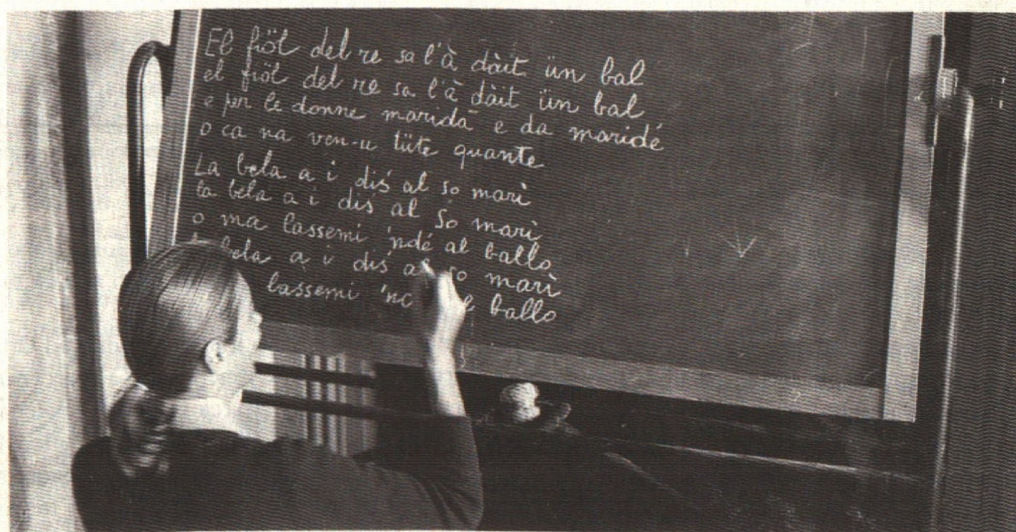 El fiöl del re sa l'à dàit ün bal
el fiöl del re sa l'à dàit ün bal
e per le donne maridà e da maridé
o ca na ven-u tüte quante
La bela a i dis al so marì
la bela a i dis al so marì
o ma lassemi 'ndé al ballo
bela a i dis al so marì
lassemi ballo